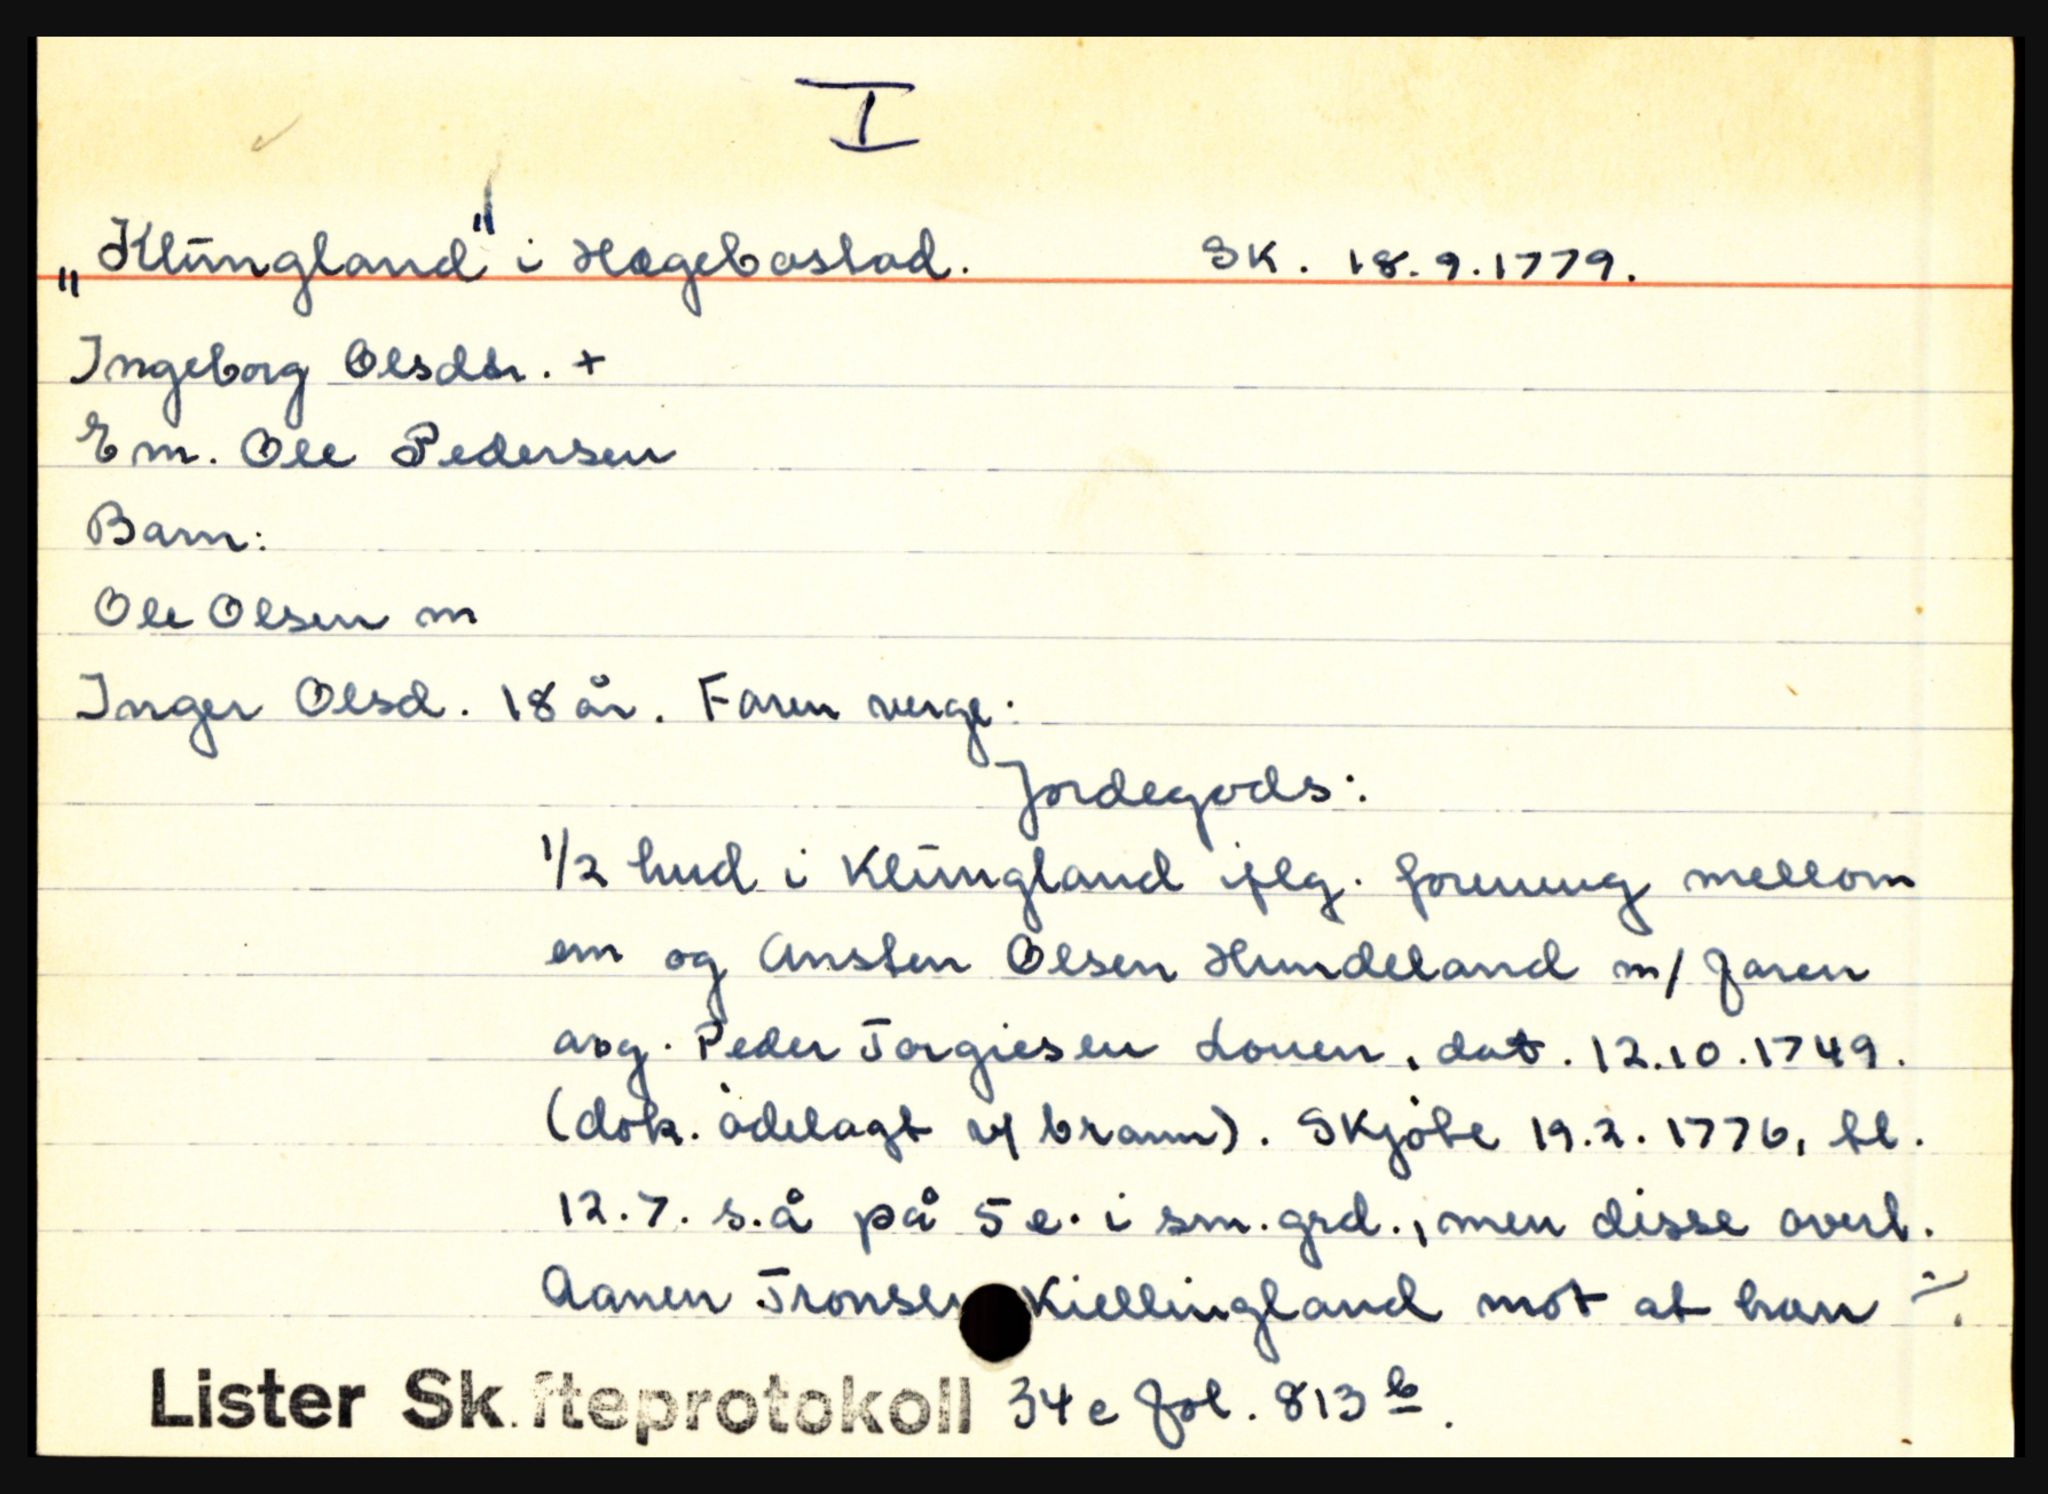 I
„Klūngland" i Hægebostad. SK. 18.9.1779.
Ingeborg Olsdtr. +
Em. Ole Pedersen
Barn:
Ole Olsen m
Inger Olsd. 18 år. Faren verge.
Jordegods:
1/2 hud i Klūngland iflg. forening mellom
em og Ansten Olsen Hundeland m/ faren
avg. Peder Torgiesen Louen, dat. 12.10.1749.
(dok. ödelagt v/ brann). Skjöte 19.2.1776, tl.
12.7. s.å på 5 e. i sm. grd., men disse overl.
Aanen Tronsen Kiellingland mot at han ./.
Lister Sk fteprotokoll 34 c fol. 813 b.